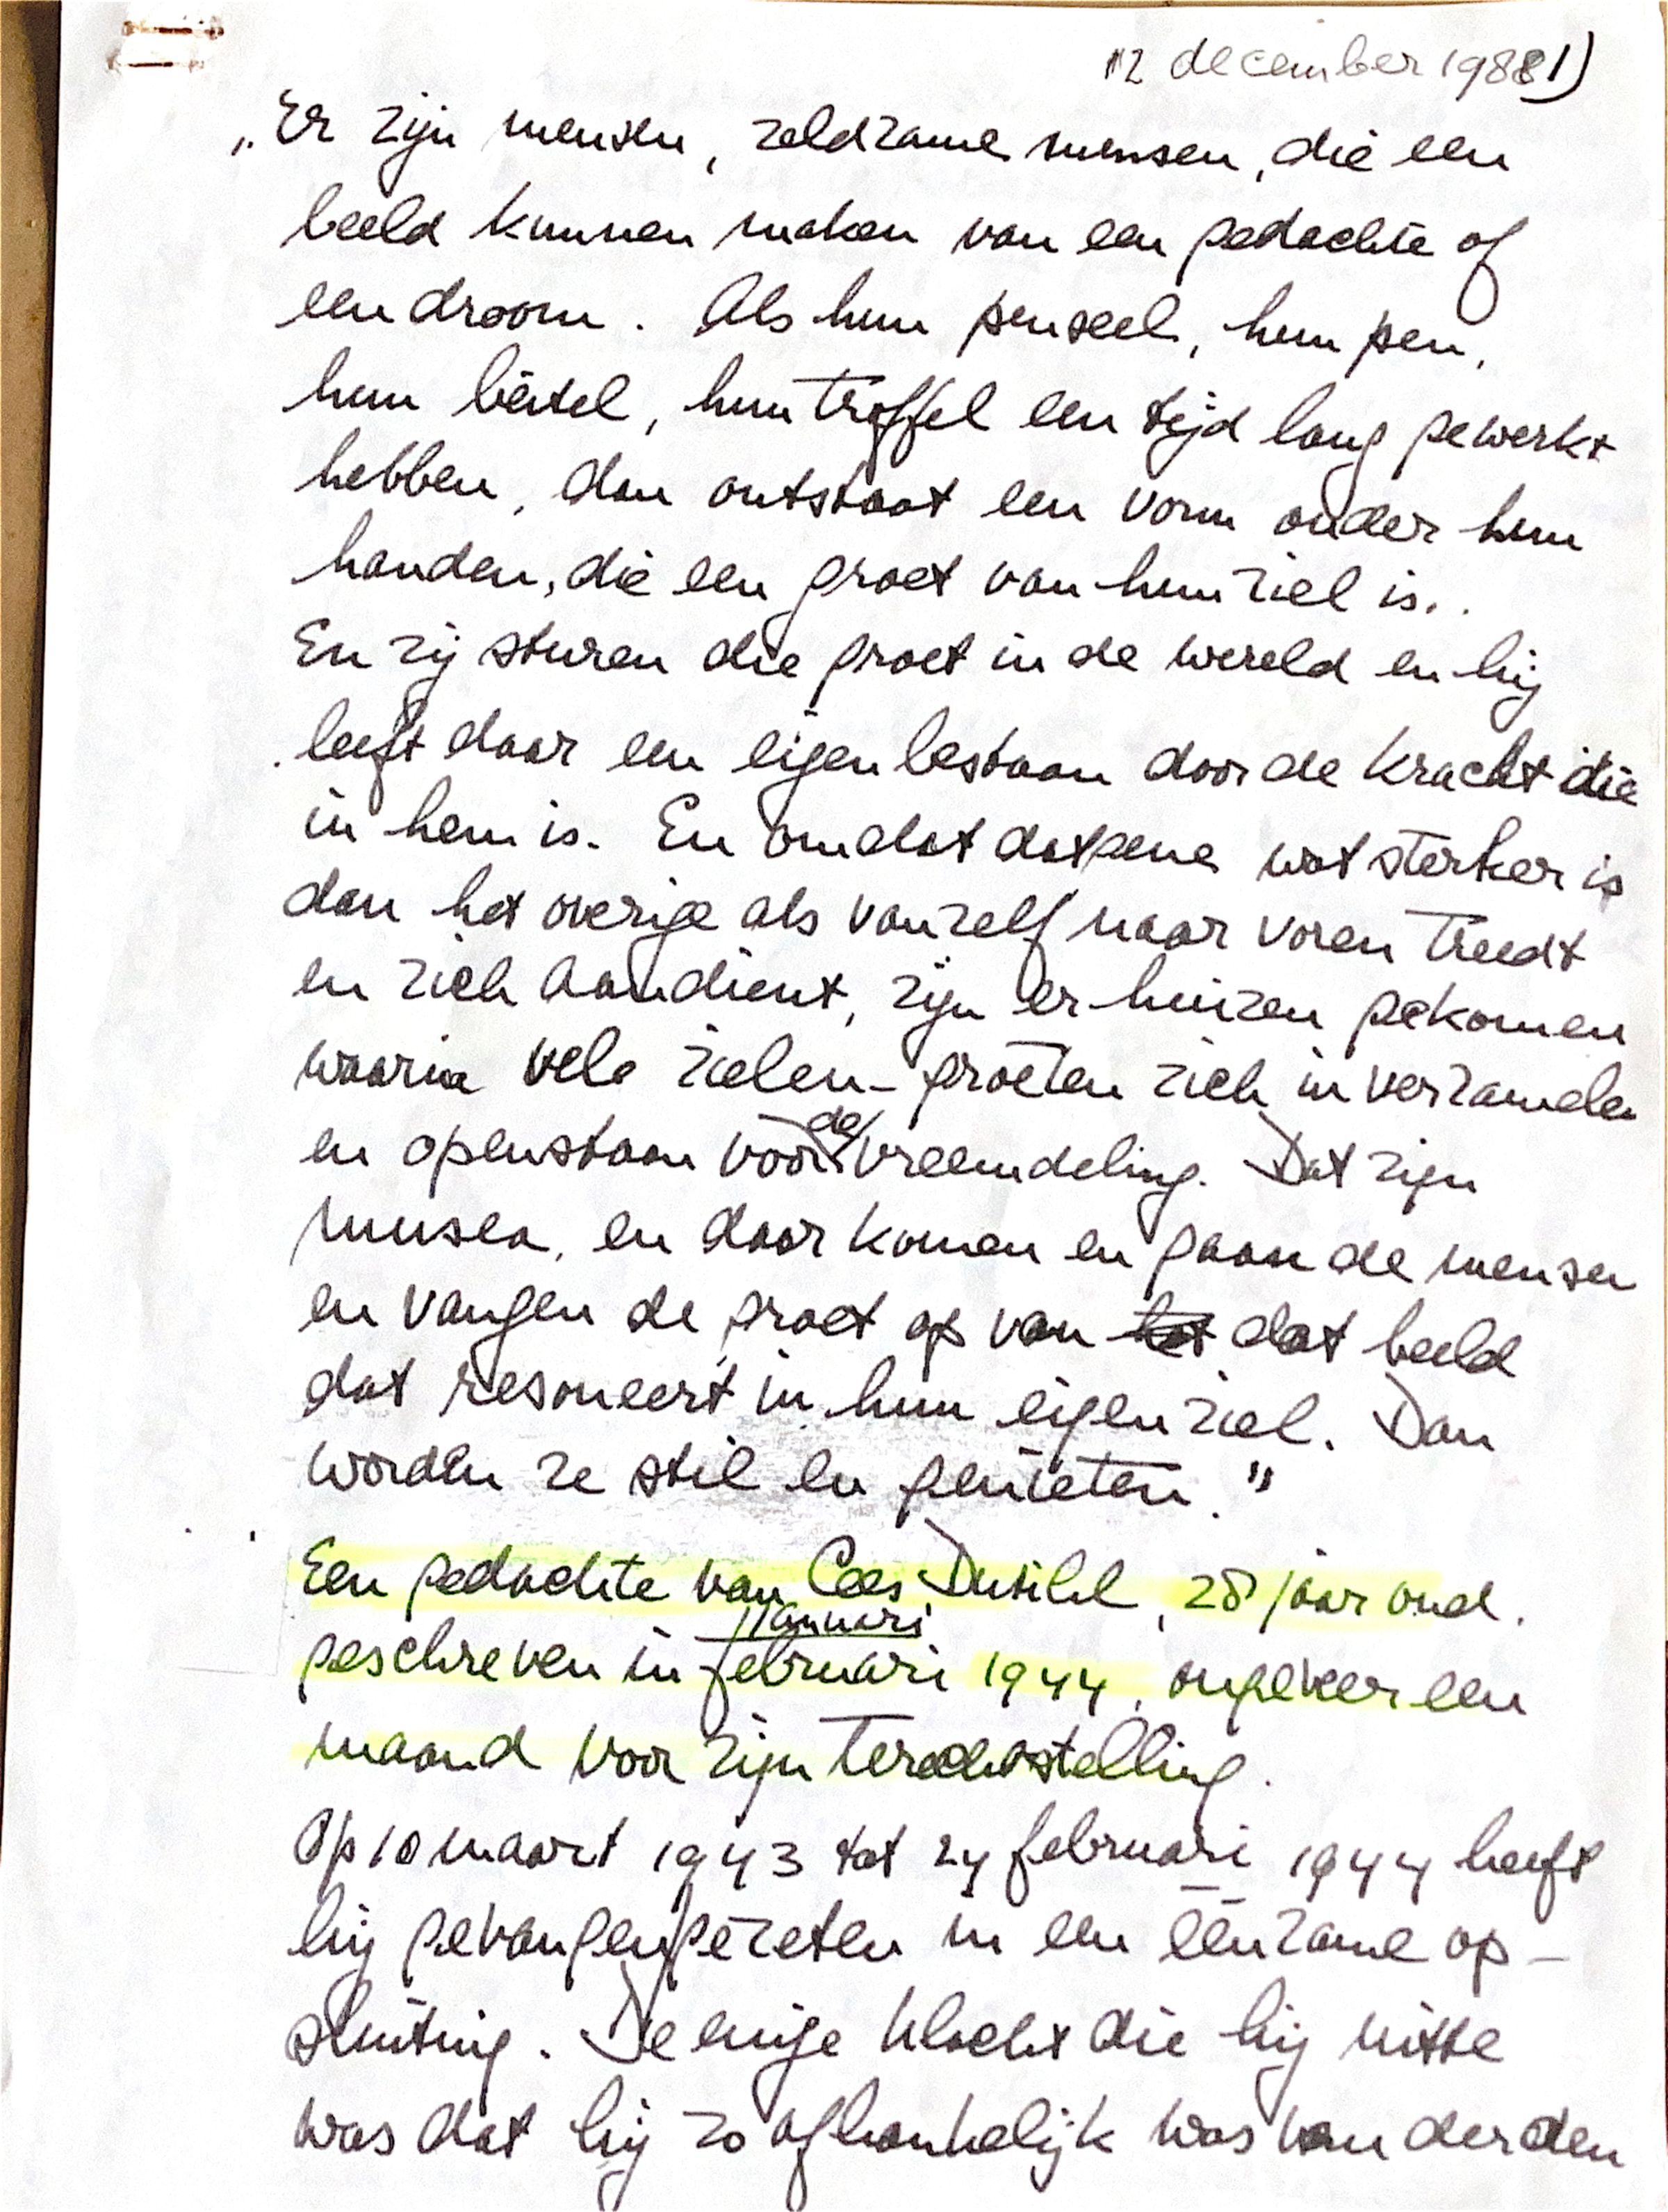 12 december 1988 1)
„Er zijn mensen, zeldzame mensen, die een
beeld kunnen maken van een gedachte of
een droom. Als hun penseel, hun pen,
hun beitel, hun troffel een tijd lang gewerkt
hebben, dan ontstaat een vorm onder hun
handen, die een groet van hun ziel is..
En zij sturen die groet in de wereld en hij
leeft daar een eigen bestaan door de kracht die
in hem is. En omdat datgene wat sterker is
dan het overige als vanzelf naar voren treedt
en zich aandient, zijn er huizen gekomen
waarin vele zielen-groeten zich in verzamelen
en openstaan voor de vreemdeling. Dat zijn
musea, en daar komen en gaan de mensen
en vangen de groet op van het dat beeld
dat resoneert in hun eigen ziel. Dan
worden ze stil en genieten."
Een gedachte van Cees Dutilh, 28 jaar oud.
januari
geschreven in februari 1944, ongeveer een
maand voor zijn terechtstelling.
Op 10 maart 1943 tot 24 februari 1944 heeft
hij gevangengezeten in een éénzame op-
sluiting. De enige klacht die hij uitte
was dat hij zo afhankelijk was van derden